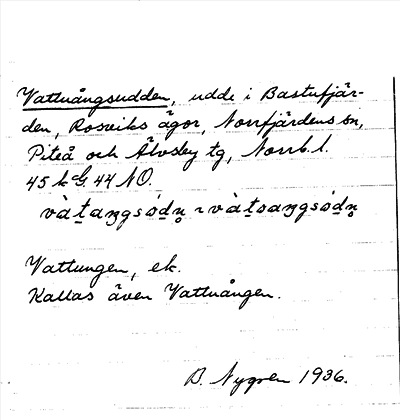 Vattuångsudden, udde i Bastufjär-
den, Rosviks ägor, Norrfjärdens sn,
Piteå och Älvsby tg, Norrb. l.
45 k G. 44 NO.
vàt̲aŋgsȯ́d̲n̥ ~ vàt̲saŋgsȯ́d̲n̥
Vattungen, ek.
Kallas även Vattuången.
B. Nygren 1936.